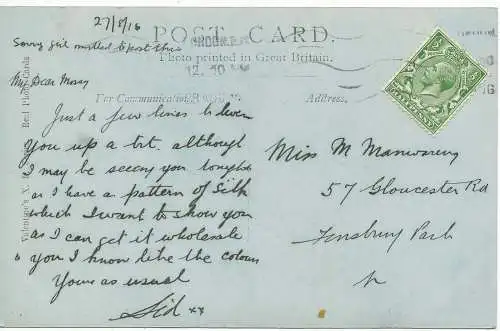 27/8/16
POST CARD.
Sorry girl instead to post this
Photo printed in Great Britain.
12.10
My Dear May
For Communication
Address,
Just a few lines to liven
you up a bit. although
I may be seeing you tonight
as I have a pattern of Silk
which I want to show you
as I can get it wholesale
& you I know like the colour
Yours as usual
Sid xx
Miss M Manwaring
57 Gloucester Rd
Finsbury Park
N
Valentine's X
Real Photo Cards
HALFPENNY